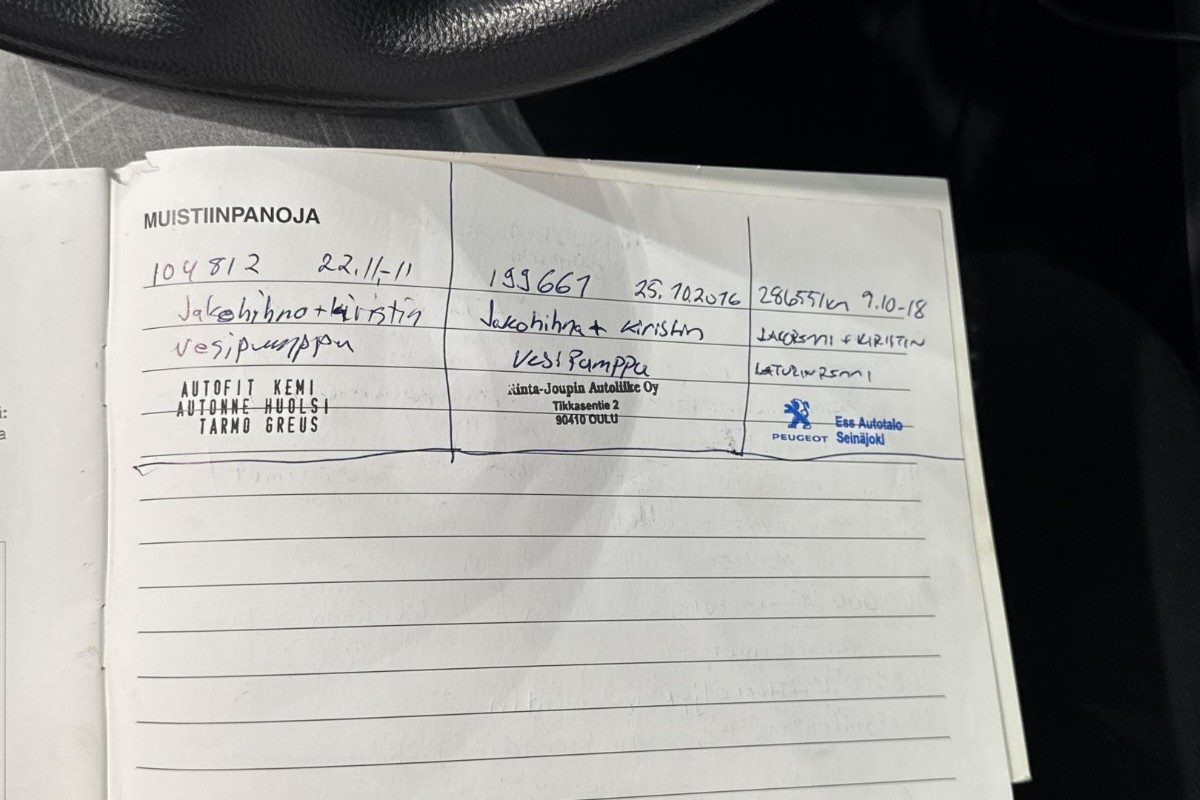 MUISTIINPANOJA
104812 22.11-11
Jakohihna + kiristin
vesipumppu
AUTOFIT KEMI
AUTONNE HUOLSI
TARMO GREUS
199661 25.10.2016
Jakohihna + kiristin
Vesipumppu
Rinta-Joupin Autoliike Oy
Tikkasentie 2
90410 OULU
286551km 9.10-18
+ KIRISTIN
PEUGEOT
Ess Autotalo
Seinäjoki